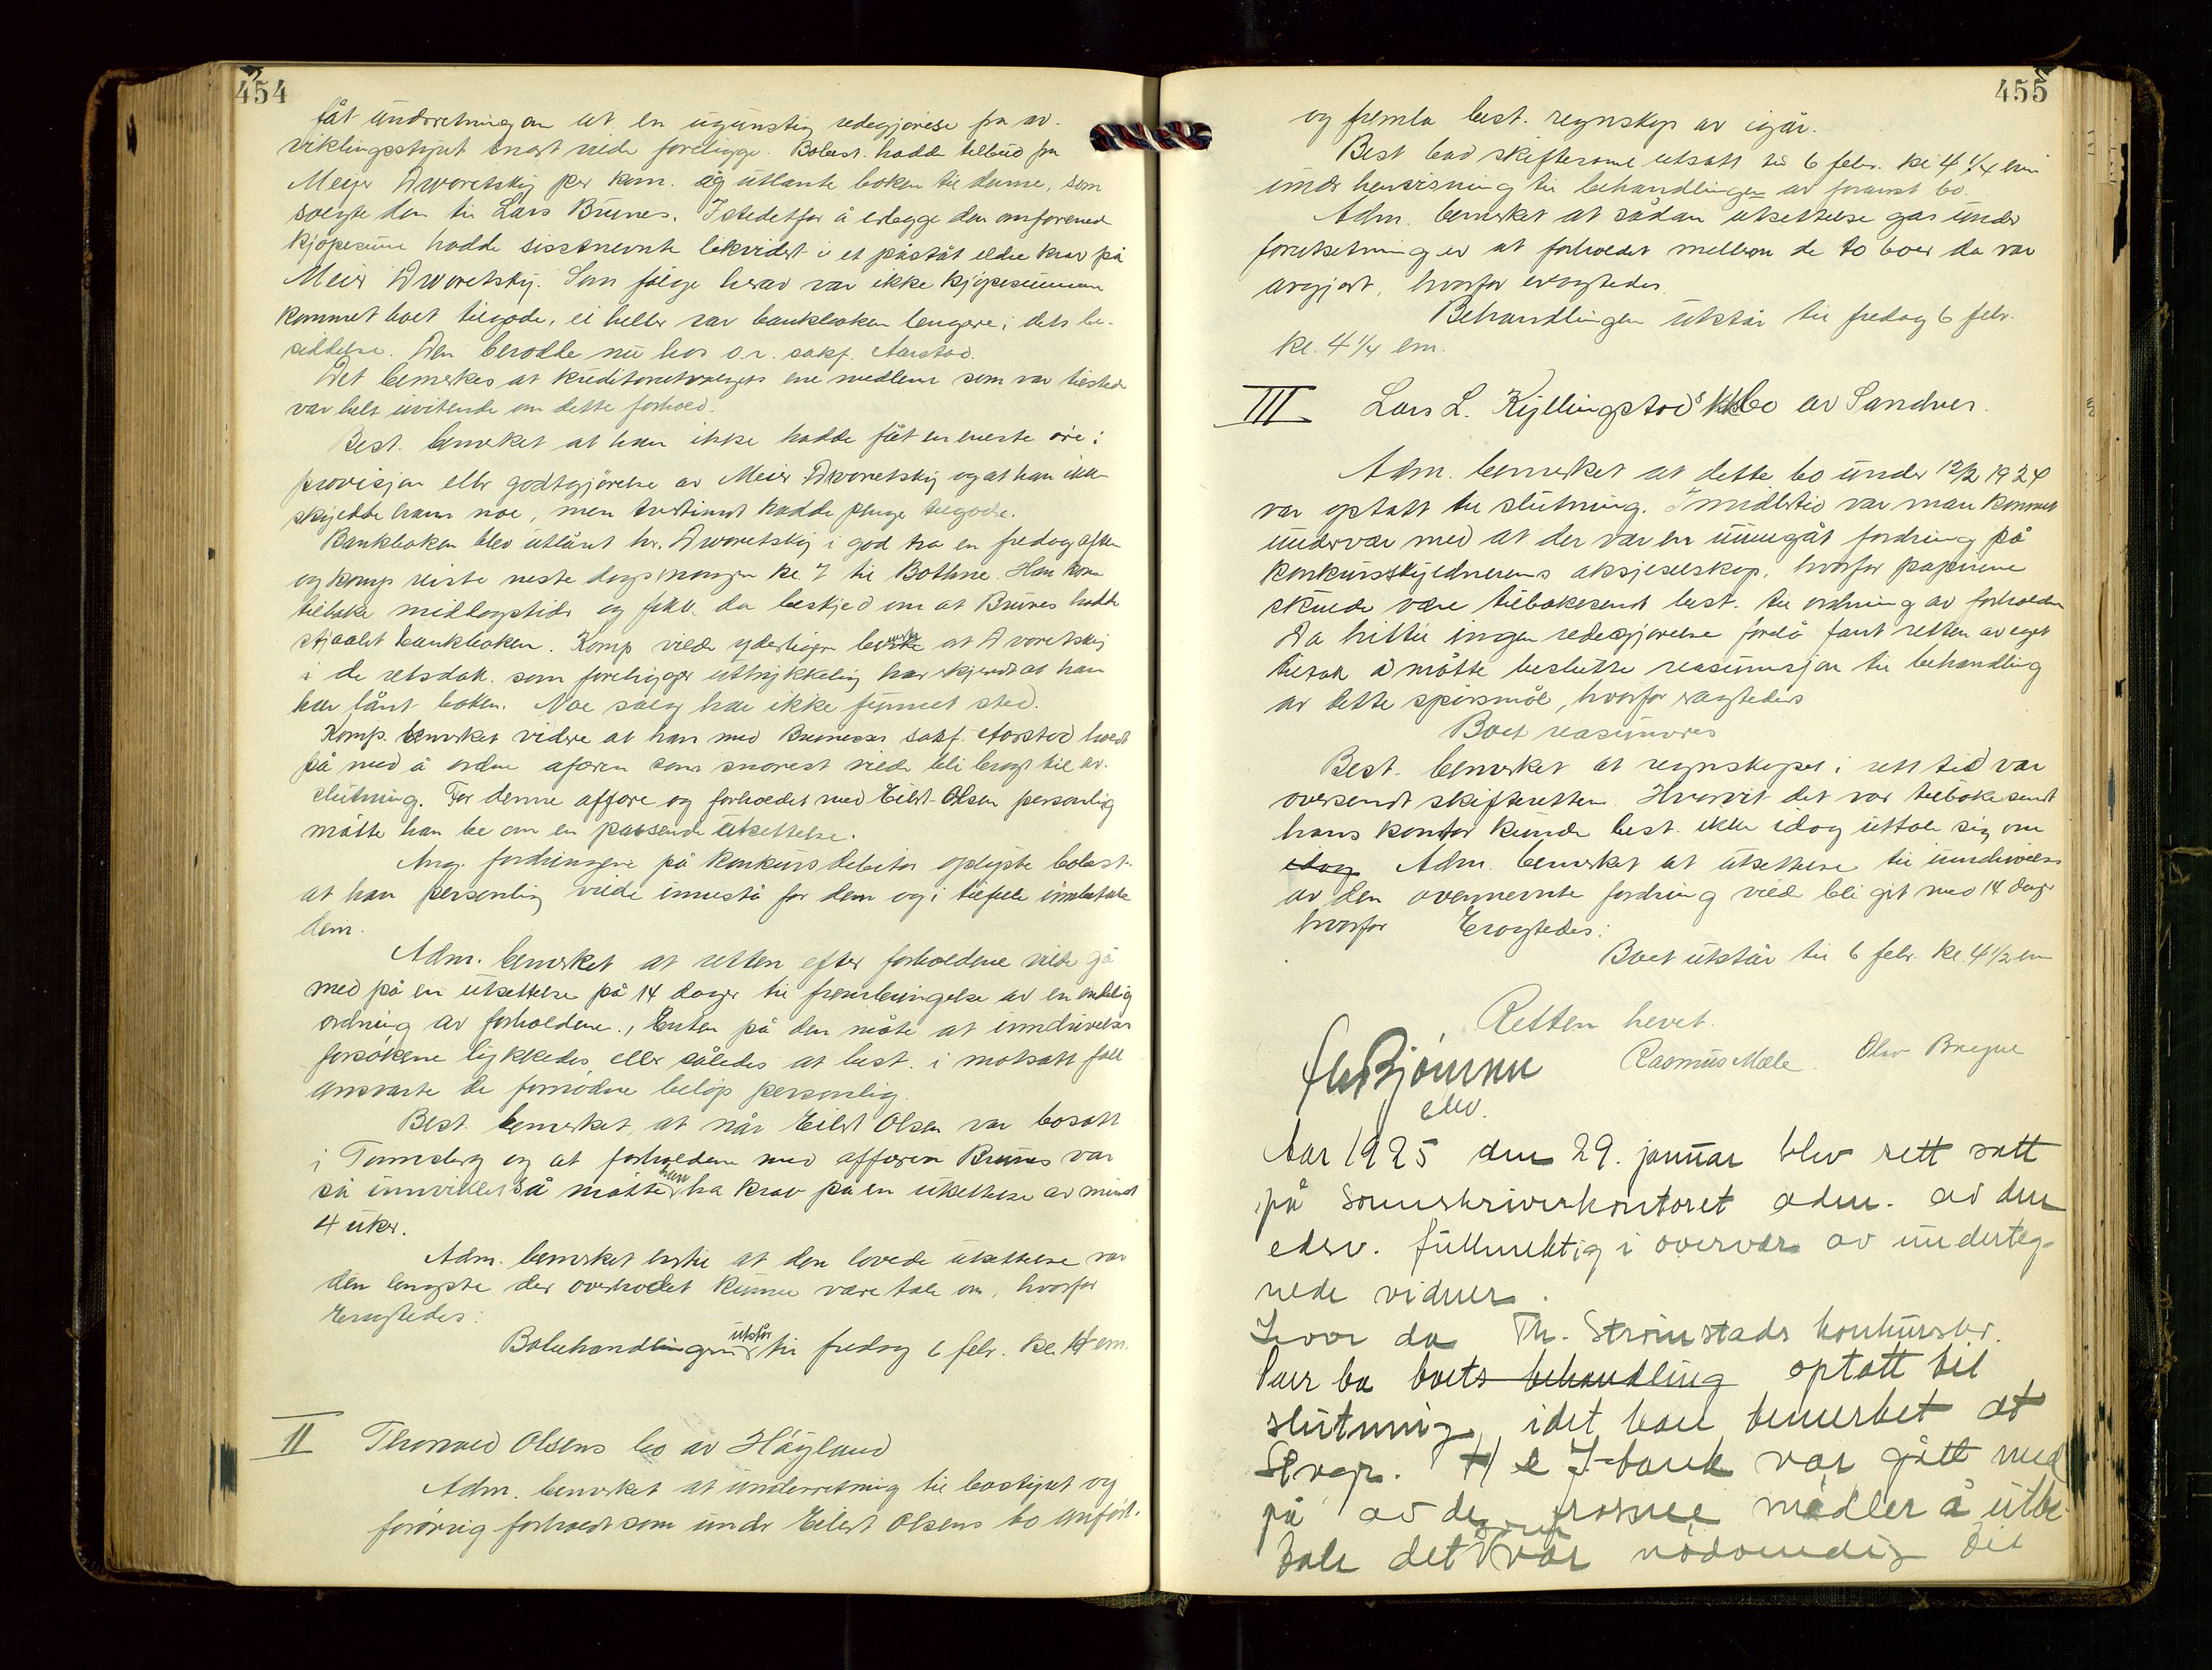 454
fåt underretning om at en ugunstig redegjørelse fra av-
viklingsstyret snart vilde foreligge. Bobest. hadde tilbud fra
Meijer Dworetsky per kom. og utlante boken til denne, som
solgte den til Lars Brunes. Istedetfor å erlegge den omforenede
kjøpesum hadde sisstnevnte likvidert i et påståt eldre krav på
Meier Dworetsky. Som følge herav var ikke kjøpesummen
kommet boet tilgode, ei heller var bankboken lengere i dets be-
siddelse. Den berodde nu hos o.r. sakf. Aarstad.
Det bemerkes at kreditorutvalgets ene medlem som var tilstede
var helt uvitende om dette forhold.
Best. bemerket at han ikke hadde fåt en eneste øre i
provisjon eller godtgjørelse av Meier Dworetsky og at han ikke
skyldte ham noe, men tvertimot hadde penge tilgode.
Bankboken blev utlånt hr. Dworetsky i god tro en fredag aften
og komp reiste neste dags morgen kl. 7 til Bothne. Han kom
tilbake middagstider og fikk da beskjed om at Brunes hadde
stjaalet bankboken. Komp vilde yderligere bemerke at Dvoretsky
i de retsdok. som foreligger uttrykkelig har erkjendt at han
har lånt boken. Noe salg har ikke funnet sted.
Komp. bemerket videre at han med Brunes's sakf. Aarstad holdt
på med å ordne affæren som snarest vilde bli bragt til av-
slutning. For denne affære og forholdet med Eilert Olsen personlig
måtte han be om en passende utsettelse.
Ang. fordringene på konkursdebitor oplyste bobest.
at han personlig vilde innestå for dem og i tilfelle innbetale
dem.
Adm. bemerket at retten efter forholdene vilde gå
med på en utsettelse på 14 dager til frembringelse av en endelig
ordning av forholdene, Enten på den måte at inndrivelses
forsøkene lykkedes eller således at best. i motsatt fall
ansvarte de fornødne beløp personlig.
Best. bemerket, at når Eilert Olsen var bosatt
i Tønsberg og at forholdene med affæren Brunes var
så innviklet så måtte han ha krav på en utsettelse av minst
4 uker.
Adm. bemerket hertil at den lovede utsettelse var
den lengste der overhodet kunne være tale om, hvorfor
Eragtedes:
Bobehandlingen utstår til fredag 6 febr. kl. 4 em.
II Thorvald Olsens bo av Høyland
Adm. bemerket at underretning til bostyret og
forøvrig forholdt som under Eilert Olsens bo anført.
455
og fremla best. regnskap av igår.
Best bad skiftesaml utsatt til 6 febr. kl 4 1/4 em
under henvisning til behandlingen av foranst bo.
Adm. bemerket at sådan utsettelse gas under
forutsetning av at forholdet mellem de to boer da var
avgjort, hvorfor eragtedes.
Behandlingen utstår til fredag 6 febr.
kl. 4 1/4 em.
III Lars L. Kyllingstad's kksbo av Sandnes.
Adm. bemerket at dette bo under 12/2 1924
var optatt til slutning. Imidlertid var man kommet
undervær med at der var en uinngåt fordring på
konkursskyldnerens aksjeselskap, hvorfor papirene
skulde være tilbakesendt best. til ordning av forholdet
Da hittil ingen redegjørelse forelå fant retten av eget
tiltak å måtte beslutte reasumsjon til behandling
av dette spørsmål, hvorfor eragtedes
Boet reasumeres
Best. bemerket at regnskapet i rett tid var
oversendt skifteretten. Hvorvit det var tilbakesendt
hans kontor kunde best. ikke idag uttale sig om
idag Adm. bemerket at utsettelse til inndrivelse
av den ovennevnte fordring vilde bli git med 14 dage
hvorfor Eragtedes:
Boet utstår til 6 febr. kl. 4 1/2 em
Retten hevet.
Rasmus Mæle. Olav Bryne
edsv.
Aar 1925 den 29. januar blev rett satt
på Sorenskriverkontoret adm. av den
edsv. fullmektig i overvær av underteg-
nede vidner.
Hvor da Th. Strømstads konkursbo.
boets behandling optatt til
slutning, idet han bemerket at
var gått med
på av de midler å utbe-
tale det som var nødvendig til